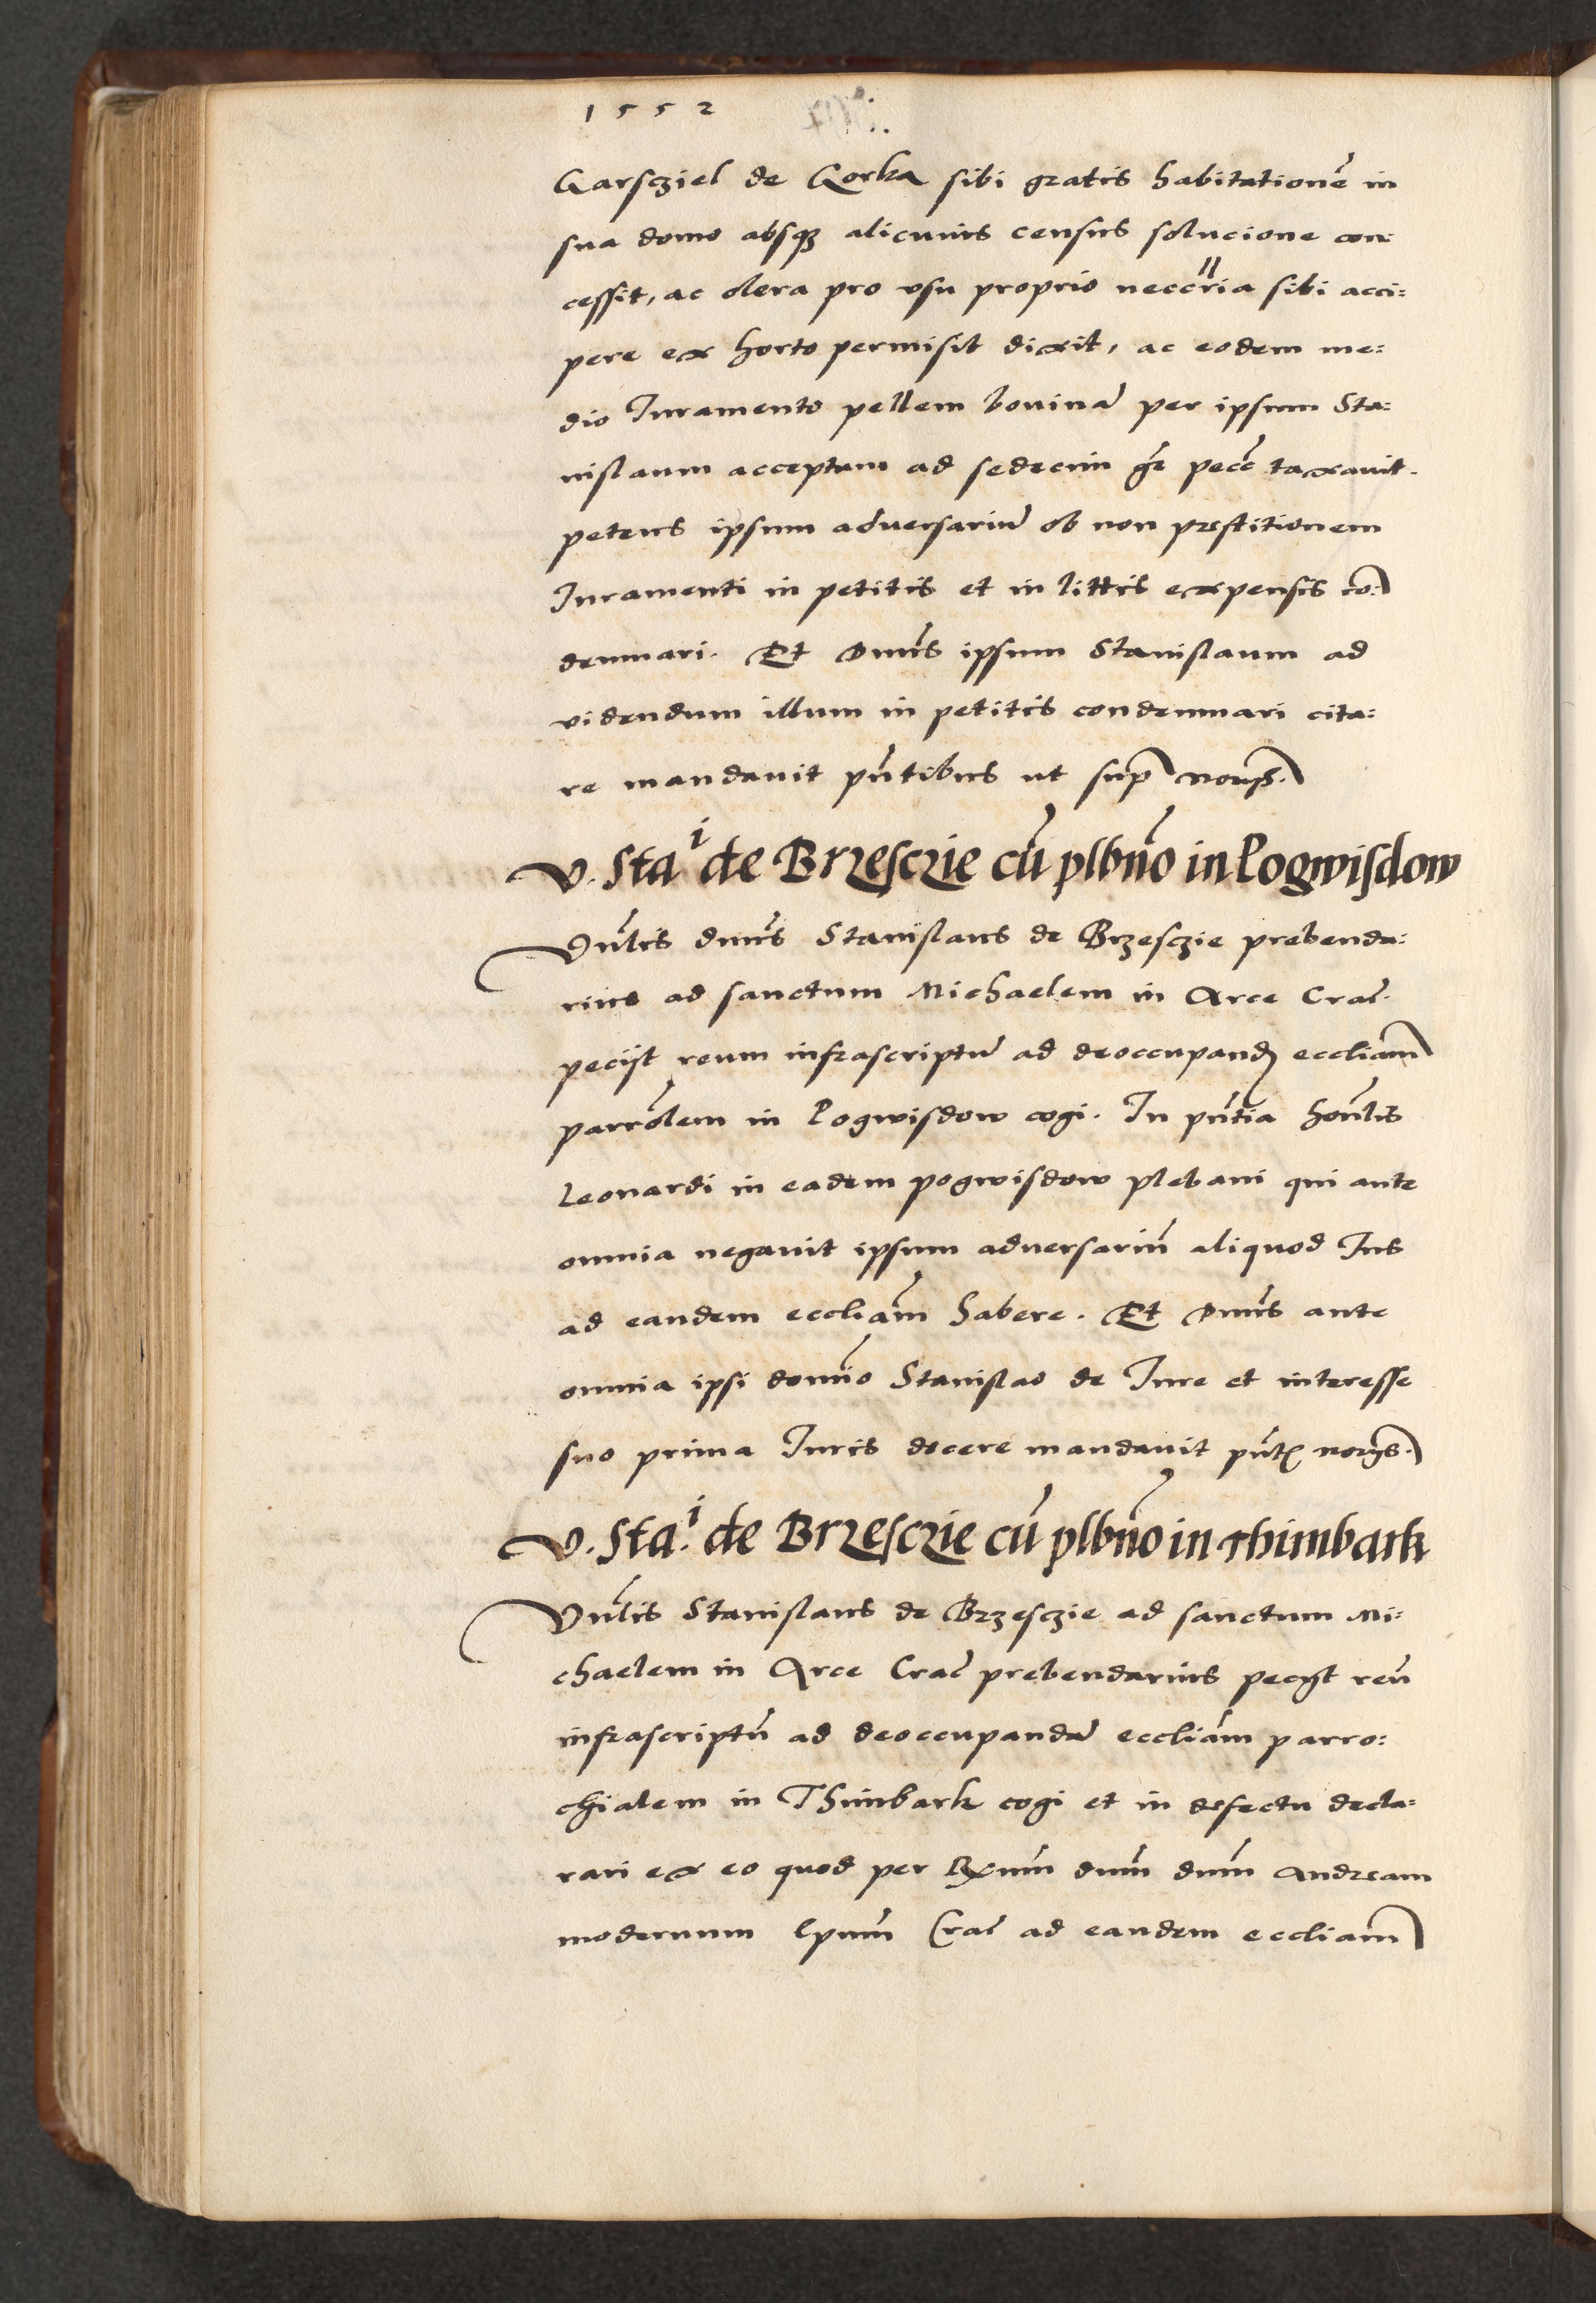 1552
Garsziel de Gorka sibi gratis habitationē in
sua domo absqꝫ alicuius census solucione con:
cessit, ac olera pro vsu proprio neccria sibi acci:
pere ex horto permisit dixit, ac eodem me:
dio Iuramento pellem bouinā per ipsum Sta:
nislaum acceptam ad sedecim gr̄ pecc̄ taxauit.
petens ipsum adversariū ob non prestitionem
Iuramenti in petitis et in littis expensis cō:
demnari. Et Dnūs ipsum Stanislaum ad
videndum illum in petitis condemnari cita:
re mandauit pn̄tibus ut sup
V. Staⁱ de Brzesczie cū plbn̄o in Pogwisdow
Vn̄lis dnūs Stanislaus de Brzesczie prebenda:
rius ad sanctum Michaelem in Arce Crac̄.
pecijt reum infrascriptū ad deoccupand eccliam
parrōlem in Pogwisdow cogi. In pn̄tia hon̄lis
Leonardi in eadem pogwisdow plebani qui ante
omnia negauit ipsum adversariū aliquod Ius
ad eandem eccliām habere. Et Dnūs ante
omnia ipsi domīo Stanislao de Iure et interesse
suo prima Iuris docere mandauit pn̄t
V. Sta.ⁱ de Brzesczie cū plbn̄o in Thimbark
Vn̄lis Stanislaus de Brzesczie ad sanctum Mi:
chaelem in Arce Crac̄ prebendarius pecijt reū
infrascriptū ad deoccupandā eccliām parro:
chialem in Thimbark cogi et in defectu decla:
rari ex eo quod per Rx̄um dn̄m dn̄m Andream
modernum Epum̄ Crac̄ ad eandem eccliam